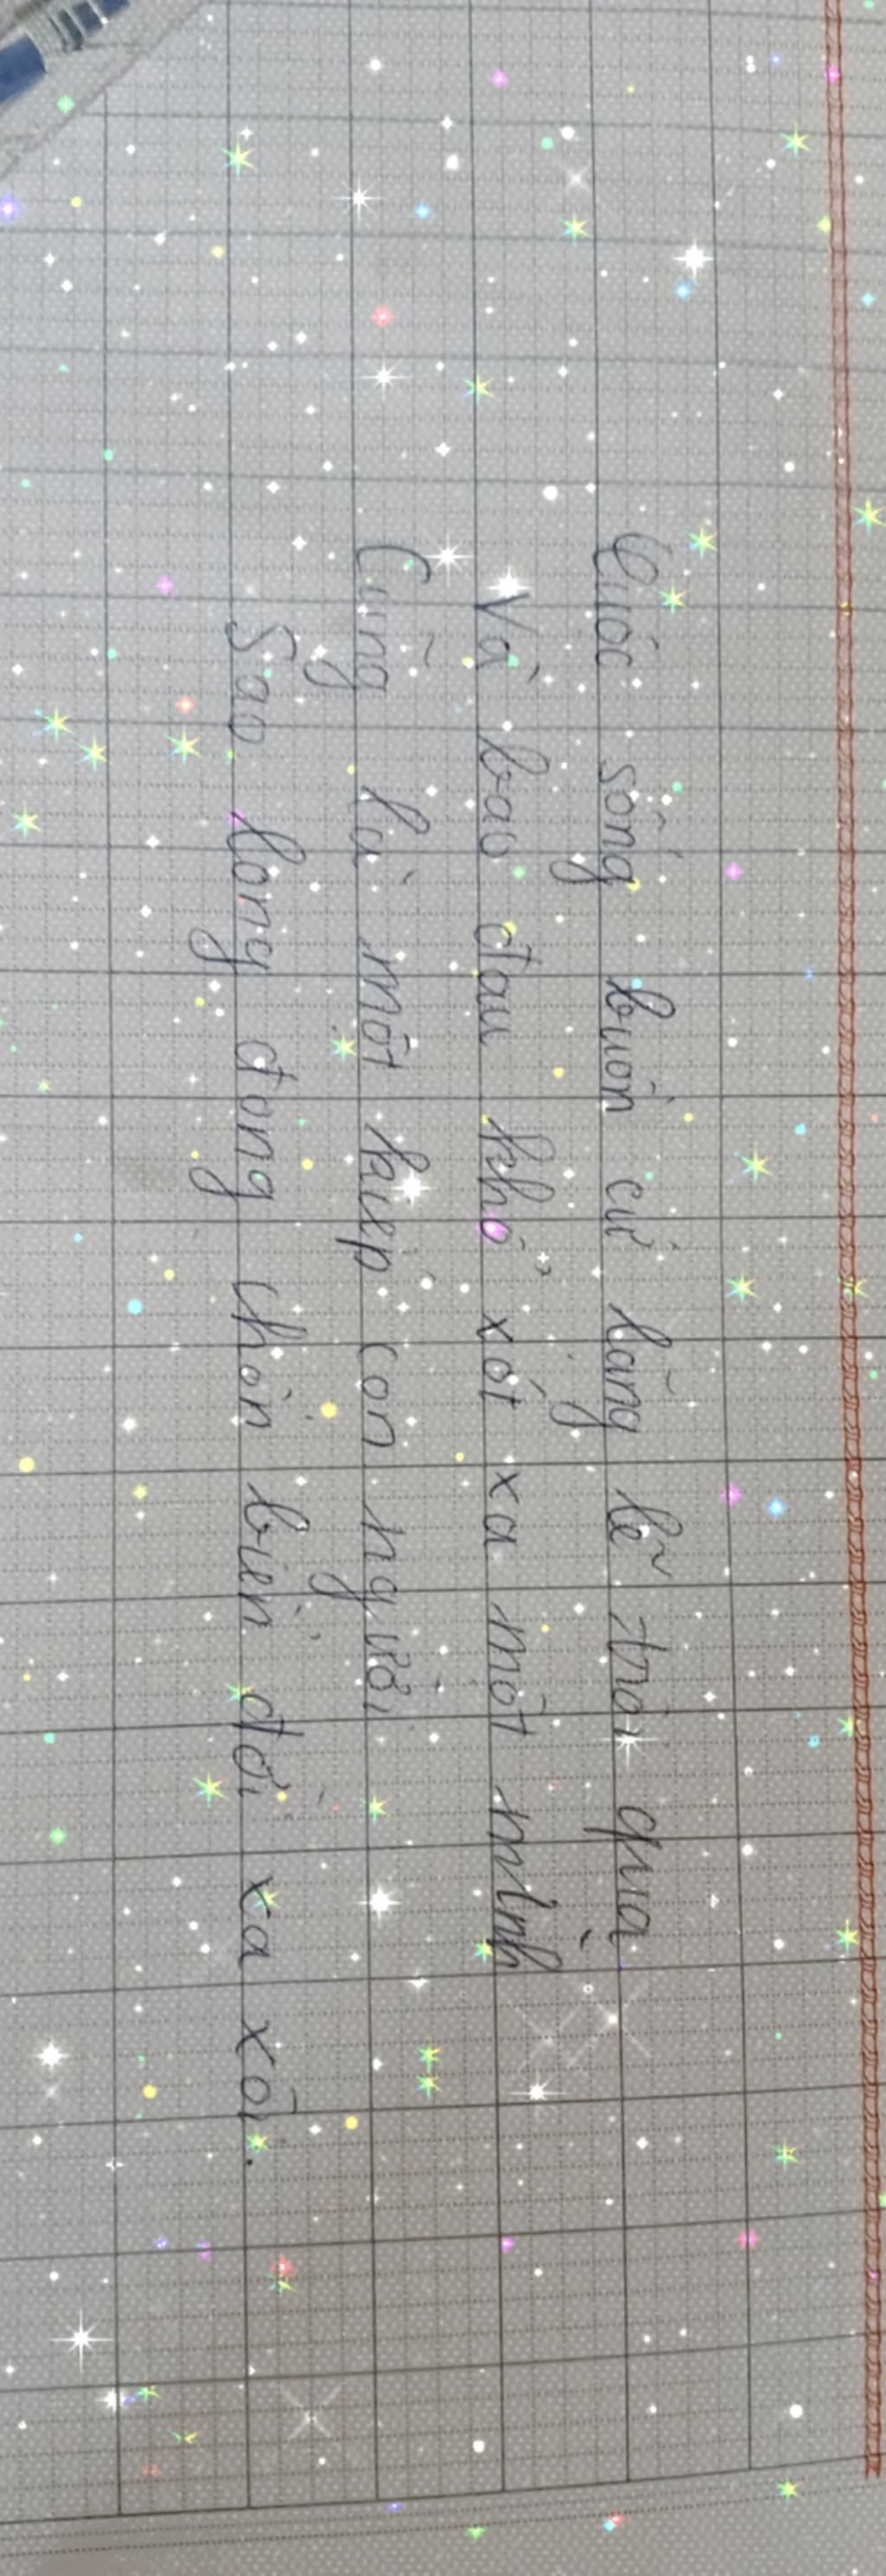 Cuộc sống buồn cứ lặng lẽ trôi qua
Và bao đau khổ xót xa một mình
Cũng là một kiếp con người
Sao long đong chốn biển đời xa xôi.